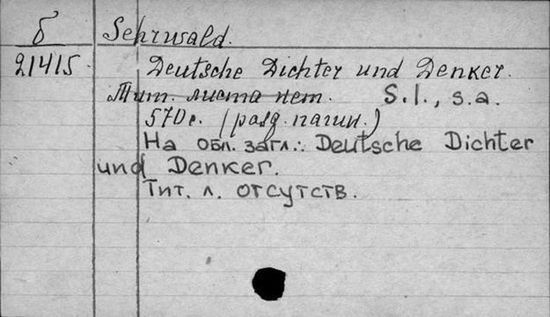 б Sehrwald.
21415. Deutsche Dichter und Denker.
Тит. листа нет. S.l., s.a.
570 с. (разд. пагин.)
На обл. загл.: Deutsche Dichter
und Denker.
Тит. л. отсутств.